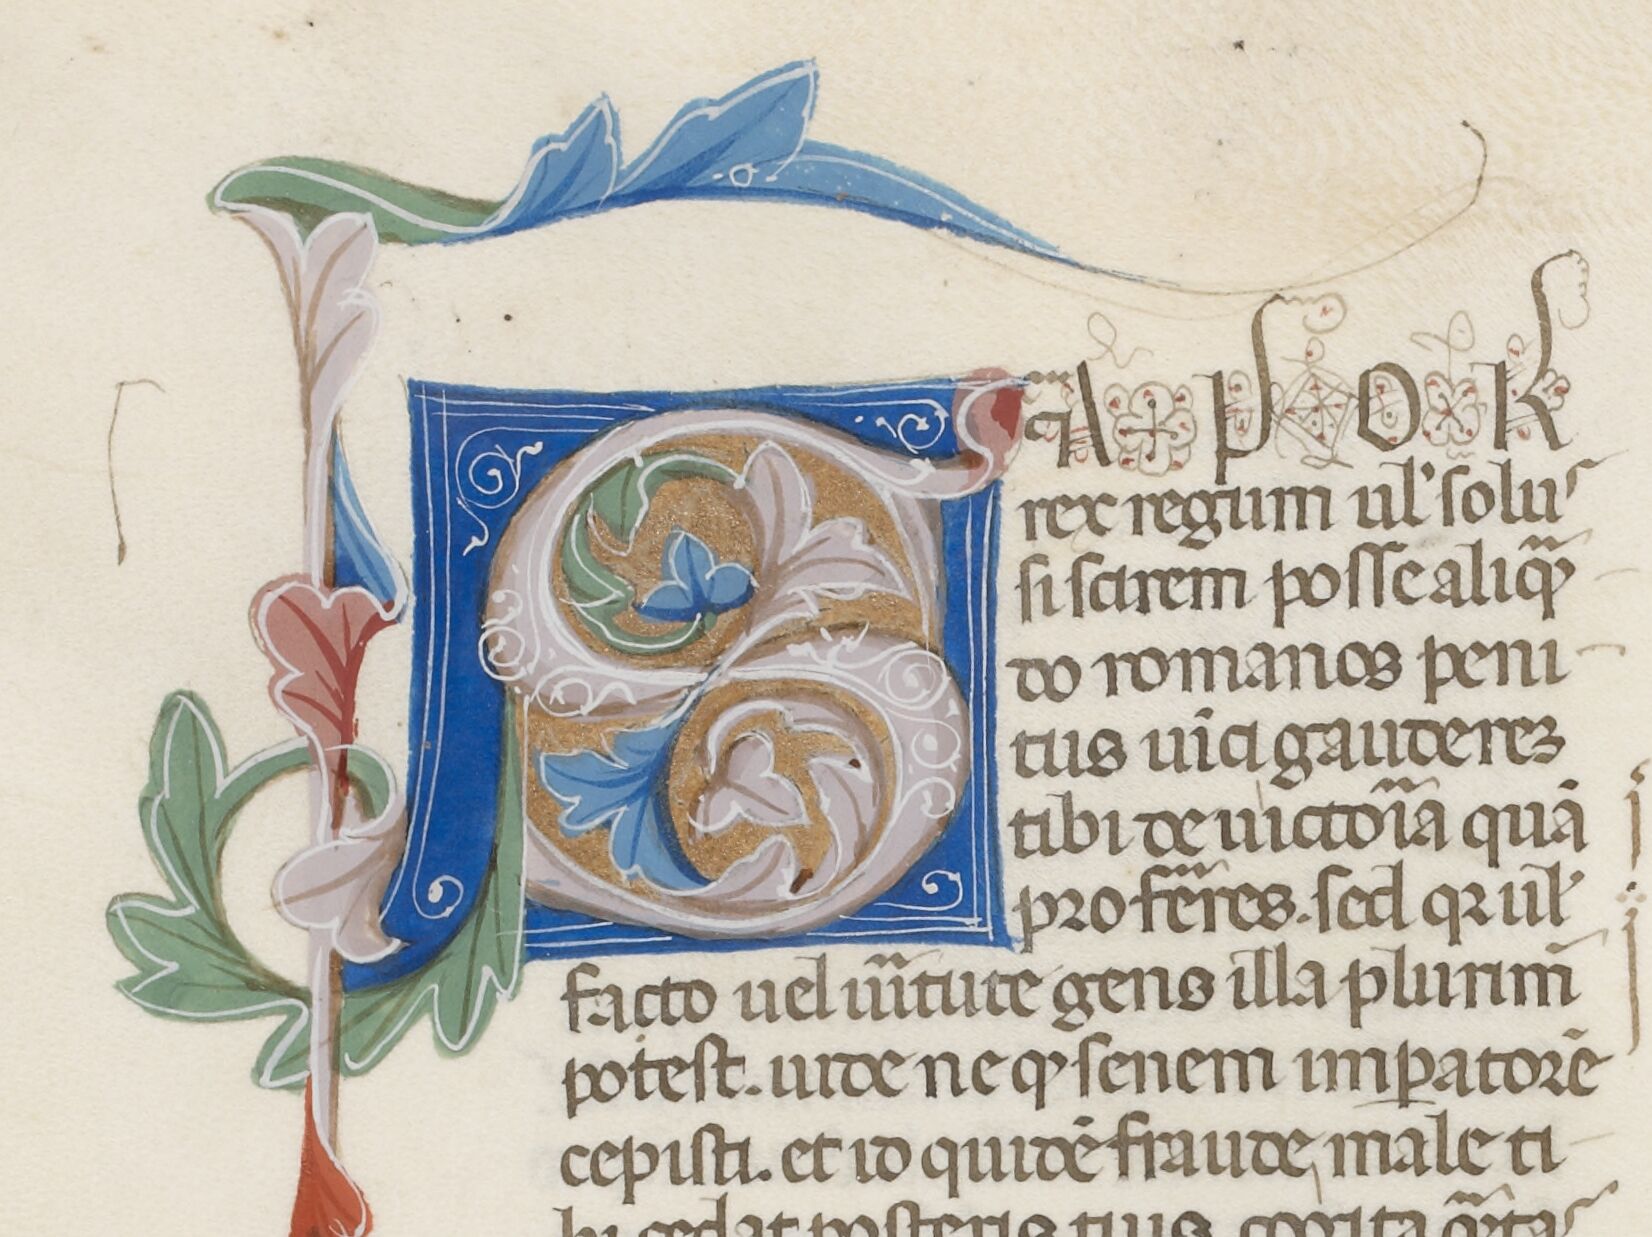 SAPOR
rex regum ul' solu
si scirem posse aliq̄
do romanos peni
tus uīci gauderez
tibi de uictoīa quā
pro fēres. sed qꝛ ul'
facto uel uītute gens illa plurim̄
potest. uide ne ꝙ senem imꝑatorē
cepisti. et id quidē fraude male ti
bi cedat posteris tuis. cogita